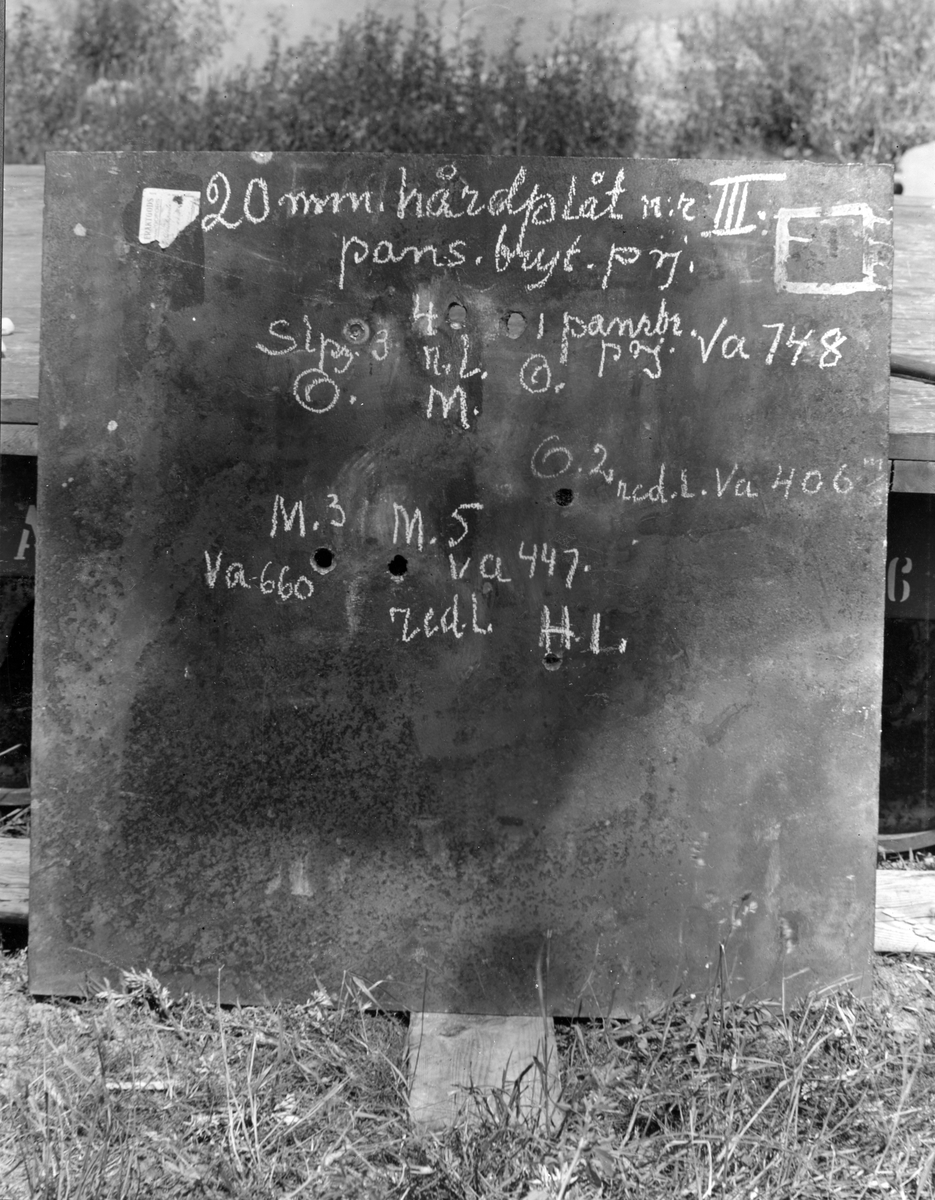 20 mm. hårdplåt n:r III.
pans. bryt. prj.
Slprj. 3
C.
4
n.L.
M.
1 pansbr.
prj. Va 748
C.
C. 2
red.L. Va 406
M. 3
Va 660
M. 5
Va 447.
red.L.
H.L.
6